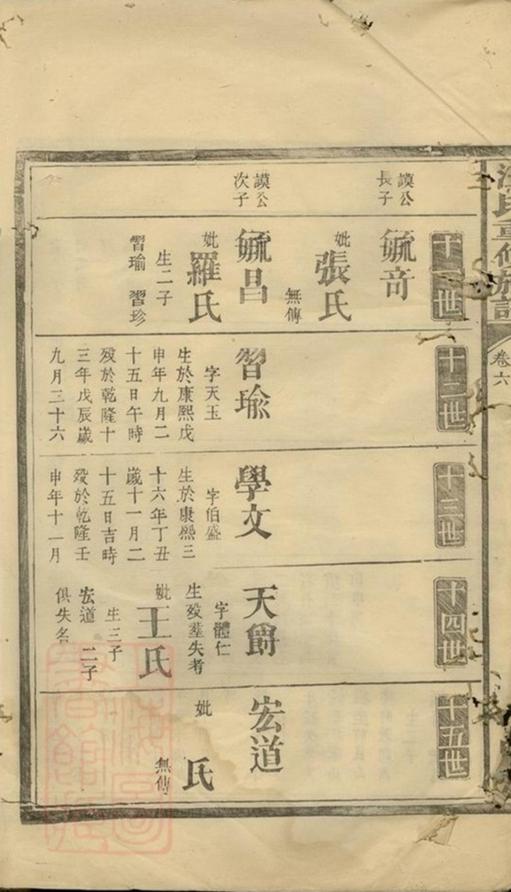 氏重修族譜
卷六
十一世
謨公
長子
毓奇
妣張氏
無傳
謨公
次子
毓昌
妣羅氏
生二子
習瑜 習珍
十二世
習瑜
字天玉
生於康熙戊
申年九月二
十五日午時
歿於乾隆十
三年戊辰歲
九月三十六
十三世
學文
字伯盛
生於康熙三
十六年丁丑
歲十一月二
十五日吉時
歿於乾隆壬
申年十一月
十四世
天爵
字體仁
生歿塟失考
妣王氏
生三子
宏道 二子
俱失名
十五世
宏道
妣 氏
無傳